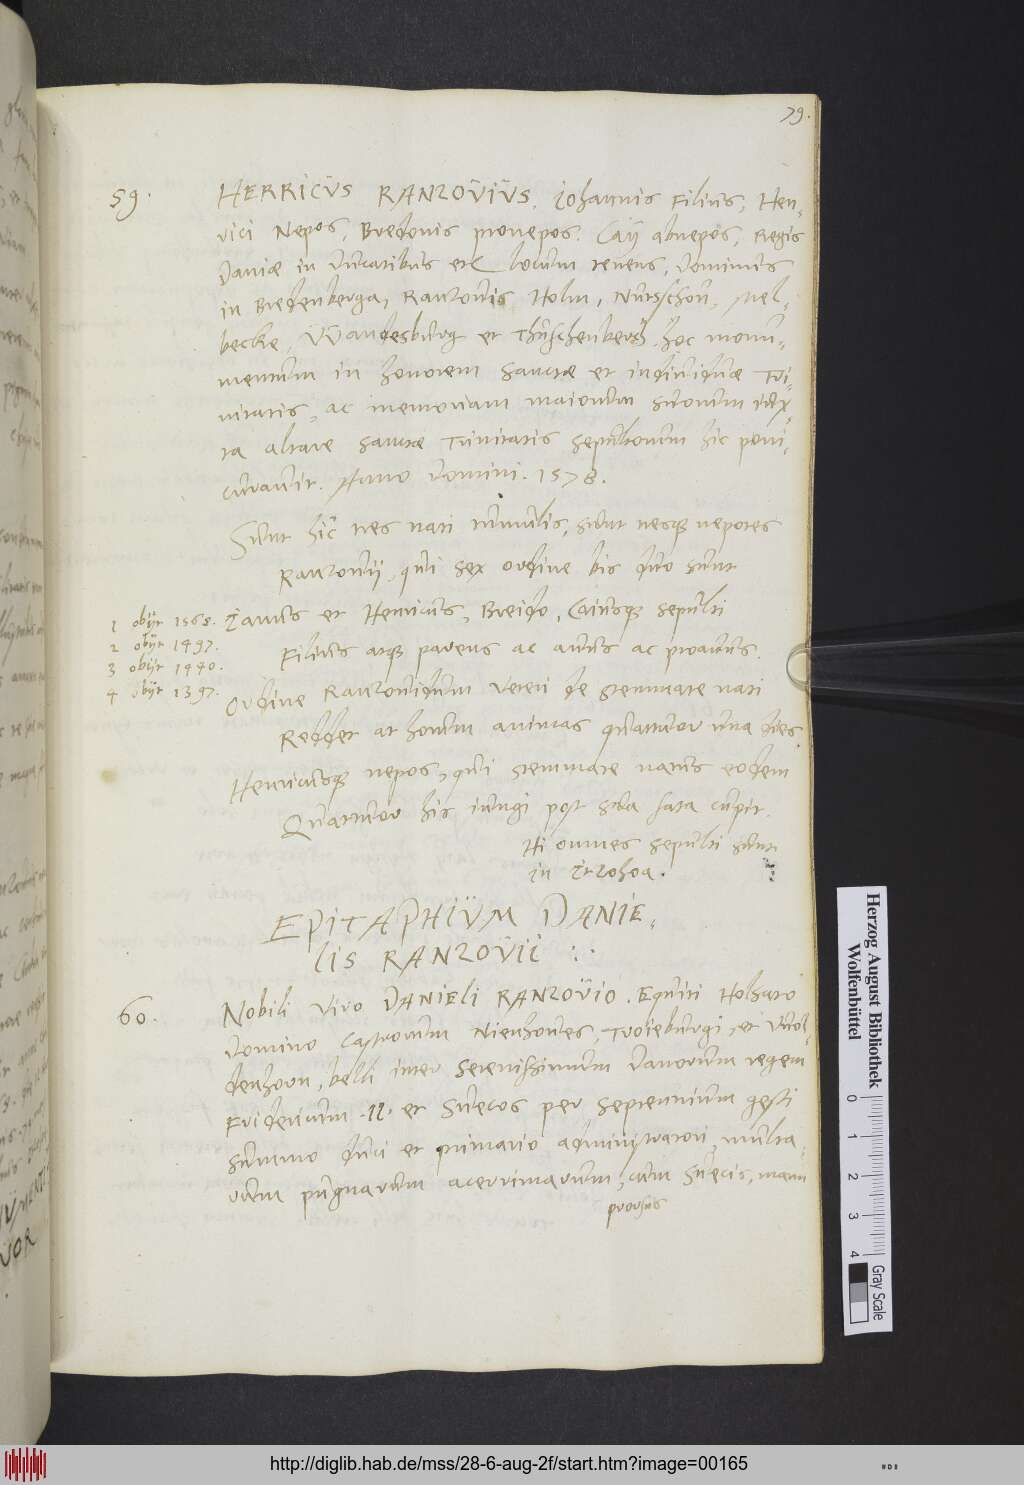 79.
59. HENRICUS RANZOVIUS, Iohannis Filius, Hen-
rici Nepos, Bredonis pronepos. Caij abnepos, Regis
Daniæ in Ducatibus etc locum tenens, Dominus
in Bredenberga, Rantzouis Holm, Nutschou, Mel-
becke, Wandesburg et Thuschenbeck, hoc monu-
mentum in honorem Sanctæ et individuæ Tri-
nitatis, ac memoriam maiorum suorum iux-
ta altare sanctæ Trinitatis sepultorum hic poni
curavit. Anno Domini. 1578.
Sunt hic tres nati tumulis, sunt tresq nepotes
Ranzovij, qui sex ordine bis duo sunt
1 obijt 1568. Paulus et Henricus, Breido, Caiusq sepulti
2 obijt 1497.
3 obijt 1440. Filius atq parens ac avus ac proavus.
4 obijt 1397. Ordine Ranzovidum veteri de stemmate nati
Reddet at horum animas quatuor una dies.
Henricusq nepos, qui stemmate natus eodem
Quatuor his iungi post sua fata cupit.
Hi omnes sepulti sunt
in Itzohoa.
EPITAPHIUM DANIE-
LIS RANZOVII
60. Nobili viro DANIELI RANZOVIO. Equiti Holsato
Domino Castrorum Nienhoves, Troieburgi et Wol-
denhorn, belli inter Serenissimum Danorum regem
Fridericum .II. et Suecos per septennium gesti
summo duci et primario administratori, multa-
rum pugnarum acerrimarum, cum Suecis, manu
prorsus
Herzog August Bibliothek
Wolfenbüttel
0 1 2 3 4
Gray Scale
http://diglib.hab.de/mss/28-6-aug-2f/start.htm?image=00165